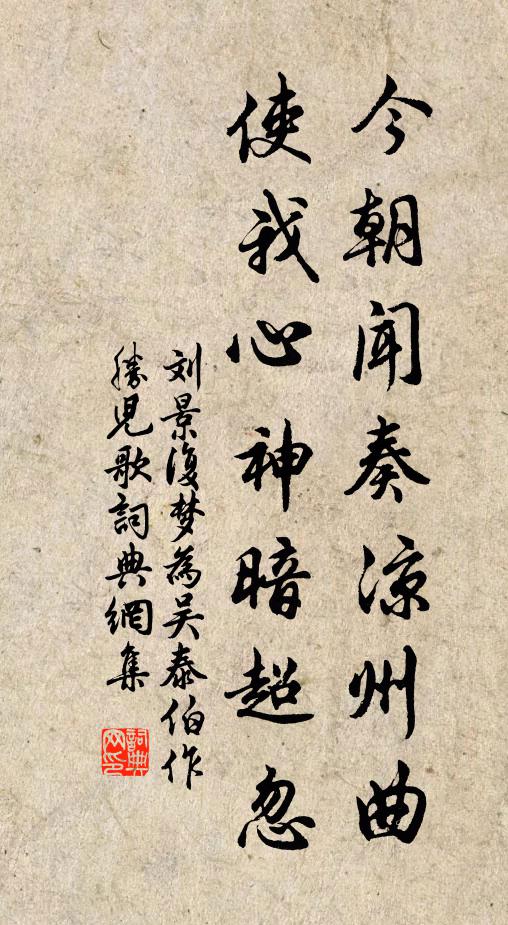 今朝闻奏凉州曲
使我心神暗超忽
刘景復梦為吴泰伯作
勝児歌詞典網集
詞典
网印